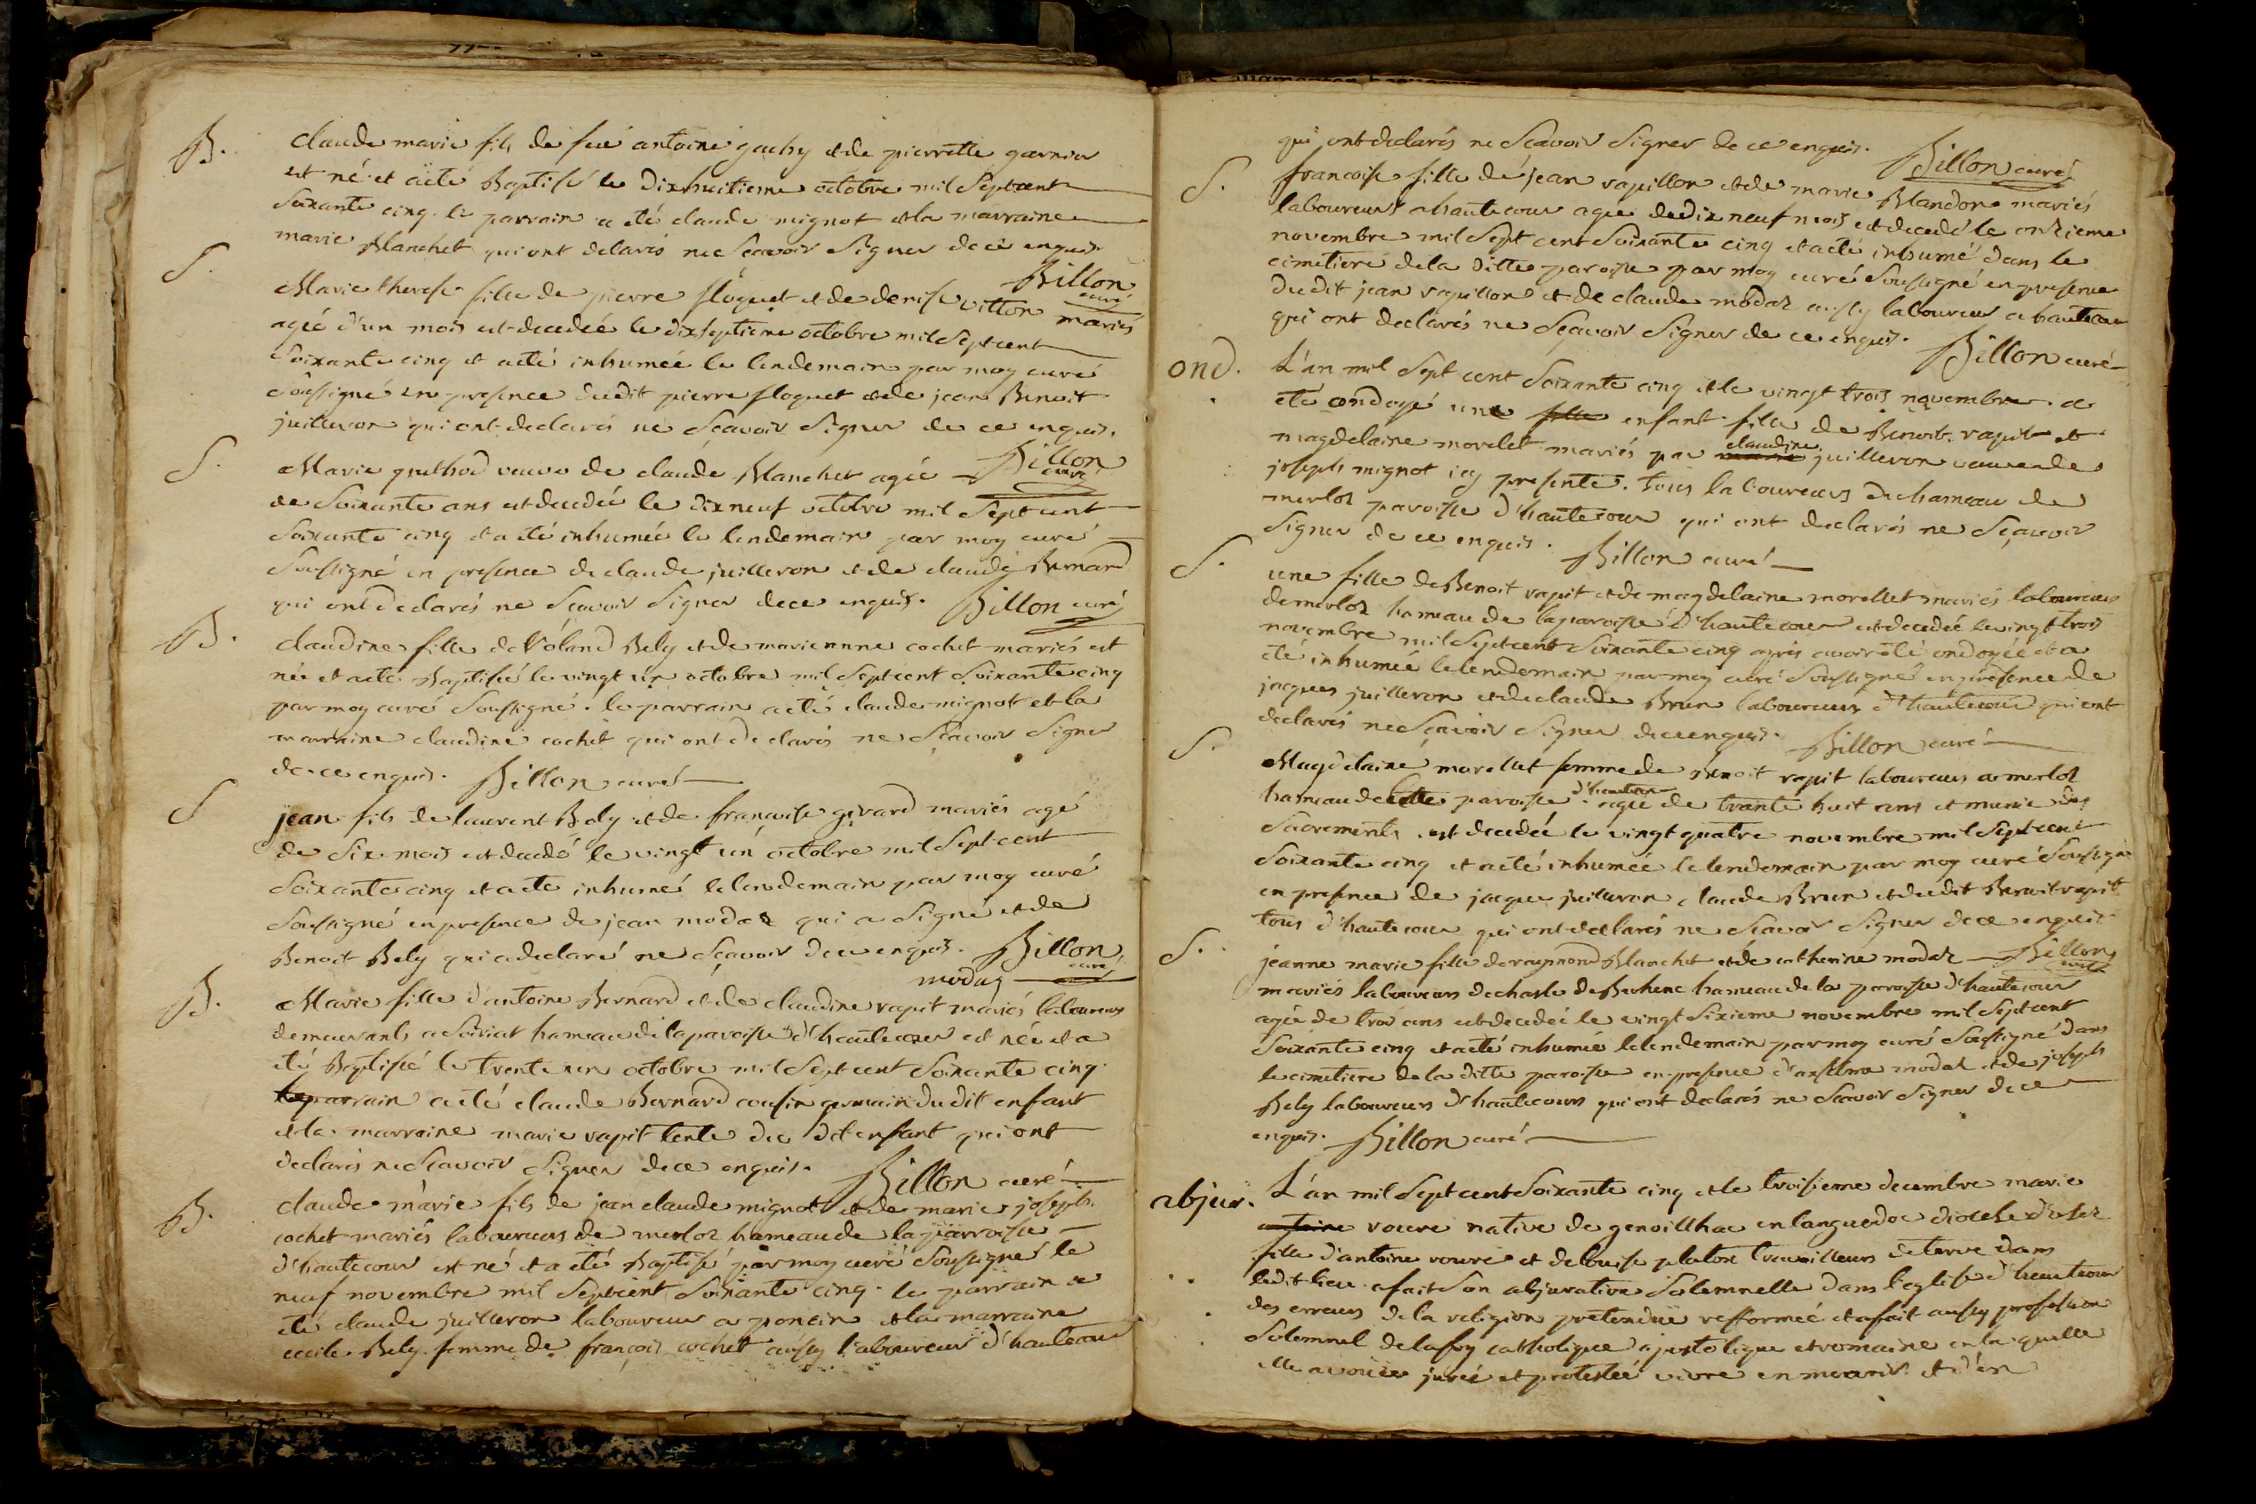 B. claude marie fils de feu antoine gachy et de pierrette garnier
est né et a eté Baptisé le dixhuitieme octobre mil Septcent
Soixante cinq. le parrain a eté claude mignot et la marraine
marie Blanchet qui ont declarés ne Sçavoir Signer de ce enquis.
Billon curé
S. Marie therese fille de pierre floquet et de denise vitton mariés
agée d'un mois est decedée le dixseptieme octobre mil Septcent
Soixante cinq et a eté inhumée le lendemain par moy curé
Soussigné en presence dudit pierre floquet et de jean Benoit
juilleron qui ont declarés ne Sçavoir Signer de ce enquis.
Billon curé
S. Marie veuve de claude Blanchet agée
de Soixante ans est decedée le dix neuf octobre mil Septcent
Soixante cinq et a eté inhumée le lendemain par moy curé
Soussigné en presence de claude juilleron et de claude Bernard
qui ont declarés ne Sçavoir Signer de ce enquis. Billon curé
B. claudine fille de Roland Bely et de mariennne cochet mariés est
née et a eté Baptisée le vingt un octobre mil Septcent Soixante cinq
par moy curé Soussigné. le parrain a eté claude mignot et la
marraine claudine cochet qui ont declarés ne Sçavoir Signer
de ce enquis. Billon curé
S jean fils de laurent Bely et de francoise girard mariés agé
de Six mois est decedé le vingt un octobre mil Sept cent
Soixante cinq et a eté inhumé le lendemain par moy curé
Soussigné en presence de jean modas qui a Signé et de
Benoit Bely qui a declaré ne Sçavoir de ce enquis. Billon curé
modas
B. Marie fille d'antoine Bernard et de claudine rapit mariés laboureurs
demeurants a Soiriat hameau de la paroisse d'hautecour est née et a
eté Baptisée le trente un octobre mil Septcent Soixante cinq.
le parrain a eté claude Bernard cousin germain dudit enfant
et la marraine marie rapit tente du dit enfant qui ont
declarés ne Sçavoir Signer de ce enquis. Billon curé
B. claude marie fils de jean claude mignot et de marie joseph
cochet mariés laboureurs de merloz hameau de la parroisse
d'hautecour est né et a eté Baptisé par moy curé Soussigné le
neuf novembre mil Septcent Soixante cinq. le parrain a
eté claude juilleron laboureur a poncin et la marraine
cecile Bely femme de françois cochet aussy laboureur d'hautecour
qui ont declarés ne Sçavoir Signer de ce enquis. Billon curé
S. francoise fille de jean rapillon et de marie Blandon mariés
laboureurs a hautecour agée de dix neuf mois est decedé le onzieme
novembre mil Sept cent Soixante cinq et a eté inhumé dans le
cimetiere de la ditte paroisse par moy curé Soussigné en presence
du dit jean rapillon et de claude modas aussy laboureur a hautecour
qui ont declarés ne Sçavoir Signer de ce enquis. Billon curé
ond. L'an mil Sept cent Soixante cinq et le vingt trois novembre a
eté ondoyé une fille enfant fille de Benoit rapit et
magdelaine morelet mariés par claudine juilleron veuve de
joseph mignot icy presente. tous laboureurs du hameau de
merloz paroisse d'hautecour qui ont declarés ne Sçavoir
Signer de ce enquis. Billon curé
S. une fille de Benoit rapit et de magdelaine morellet mariés laboureurs
de merloz hameau de la paroisse d'hautecour est decedée le vingt trois
novembre mil Septcent Soixante cinq après avoir eté ondoyée et a
eté inhumée le lendemain par moy curé Soussigné en presence de
jacques juilleron et de claude Brun laboureurs d'hautecour qui ont
declarés ne Sçavoir Signer de ce enquis. Billon curé
S. Magdelaine morellet femme de Benoit rapit laboureur a merloz
hameau de cette paroisse d'hautecour agée de trante huit ans et munie des
Sacrements. est decedée le vingt quatre novembre mil Septcent
Soixante cinq et a eté inhumée le lendemain par moy curé Soussigné
en presence de jacque juilleron claude Brun et dudit Benoit rapit
tous d'hautecour qui ont declarés ne Sçavoir Signer de ce enquis
Billon curé
S. jeanne marie fille de raymond Blanchet et de catherine modas
mariés laboureurs de hameau de la paroisse d'hautecour
agée de trois ans est decedée le vingt Sixieme novembre mil Septcent
Soixante cinq et a eté inhumée le lendemain par moy curé Soussigné dans
le cimetiere de la ditte paroisse en presence d'anselme modas et de joseph
Bely laboureurs d'hautecour qui ont declarés ne Sçavoir Signer de ce
enquis. Billon curé
abjur. L'an mil Sept cent Soixante cinq et le troisieme decembre marie
antoine roure native de genoillhac en languedoc diocese d'usez
fille d'antoine roure et de louise platon travailleurs de terre dans
ledit lieu a fait Son abjuration Solemnelle dans l'eglise d'hautecour
des erreurs de la religion pretendüe refformée et a fait aussy profession
Solemnel de la foy catholique apostolique et romaine en la quelle
elle a vouée jurée et protestée vivre en mourir et d'en